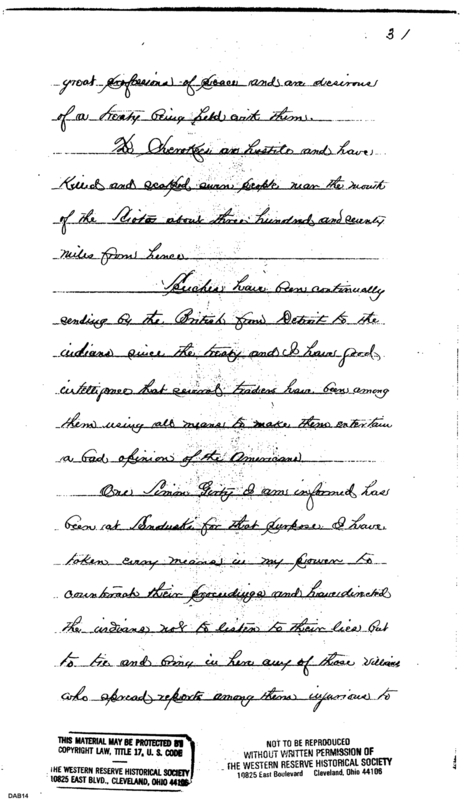 31
great professions of peace and are desirous
of a treaty being held with them.
The Cherokees are hostile and have
Killed and scalped seven people near the mouth
of the Sciota about three hundred and seventy
miles from hence
Speeches have been continually
sending by the British from Detroit to the
indians since the treaty and I have good
intelligence that several traders have been among
them using all means to make them entertain
a bad opinion of the Americans
One Simon Girty I am informed has
been at Sandusky for that purpose I have
taken every means in my power to
counteract their proceedings and have directed
the indians not to listen to their lies but
to tie and bring in here any of those Villians
who spread reports among them injurious to
THIS MATERIAL MAY BE PROTECTED BY
COPYRIGHT LAW, TITLE 17, U. S. CODE
THE WESTERN RESERVE HISTORICAL SOCIETY
10825 EAST BLVD., CLEVELAND, OHIO 44106
NOT TO BE REPRODUCED
WITHOUT WRITTEN PERMISSION OF
THE WESTERN RESERVE HISTORICAL SOCIETY
10825 East Boulevard Cleveland, Ohio 44106
DAB14